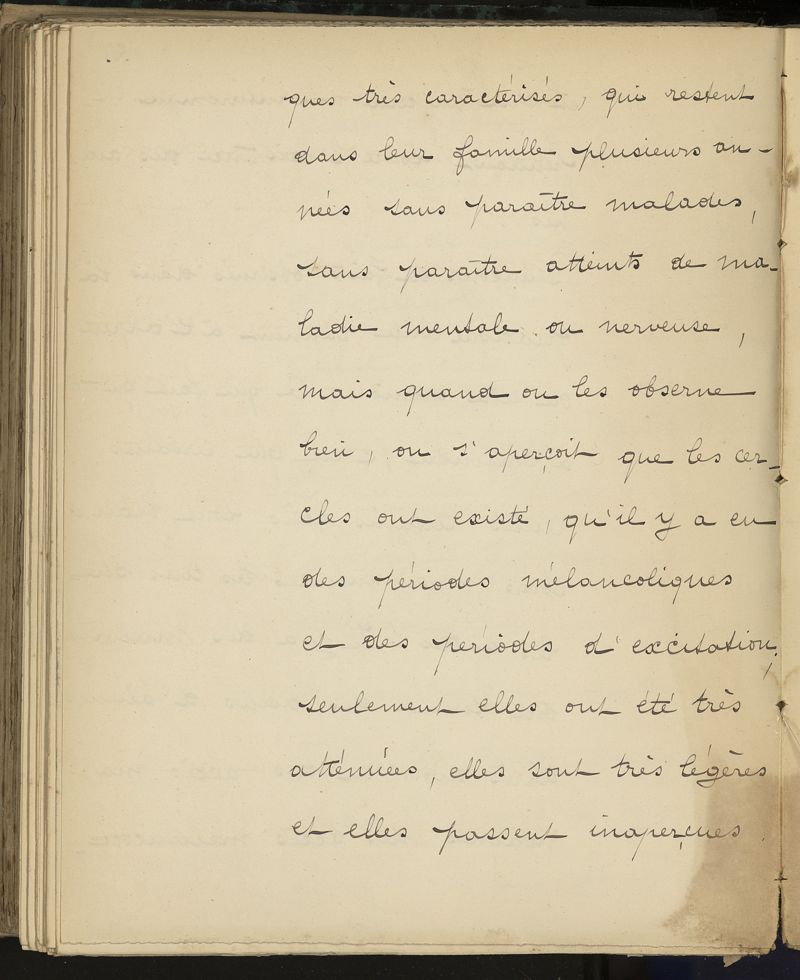 ques très caractérisés, qui restent
dans leur famille plusieurs an-
nées sans paraître malades,
sans paraître atteints de ma-
ladie mentale ou nerveuse,
mais quand on les observe
bien, on s'aperçoit que les cer-
cles ont existé, qu'il y a eu
des périodes mélancoliques
et des périodes d'excitation;
seulement elles ont été très
atténuées, elles sont très légères
et elles passent inaperçues.